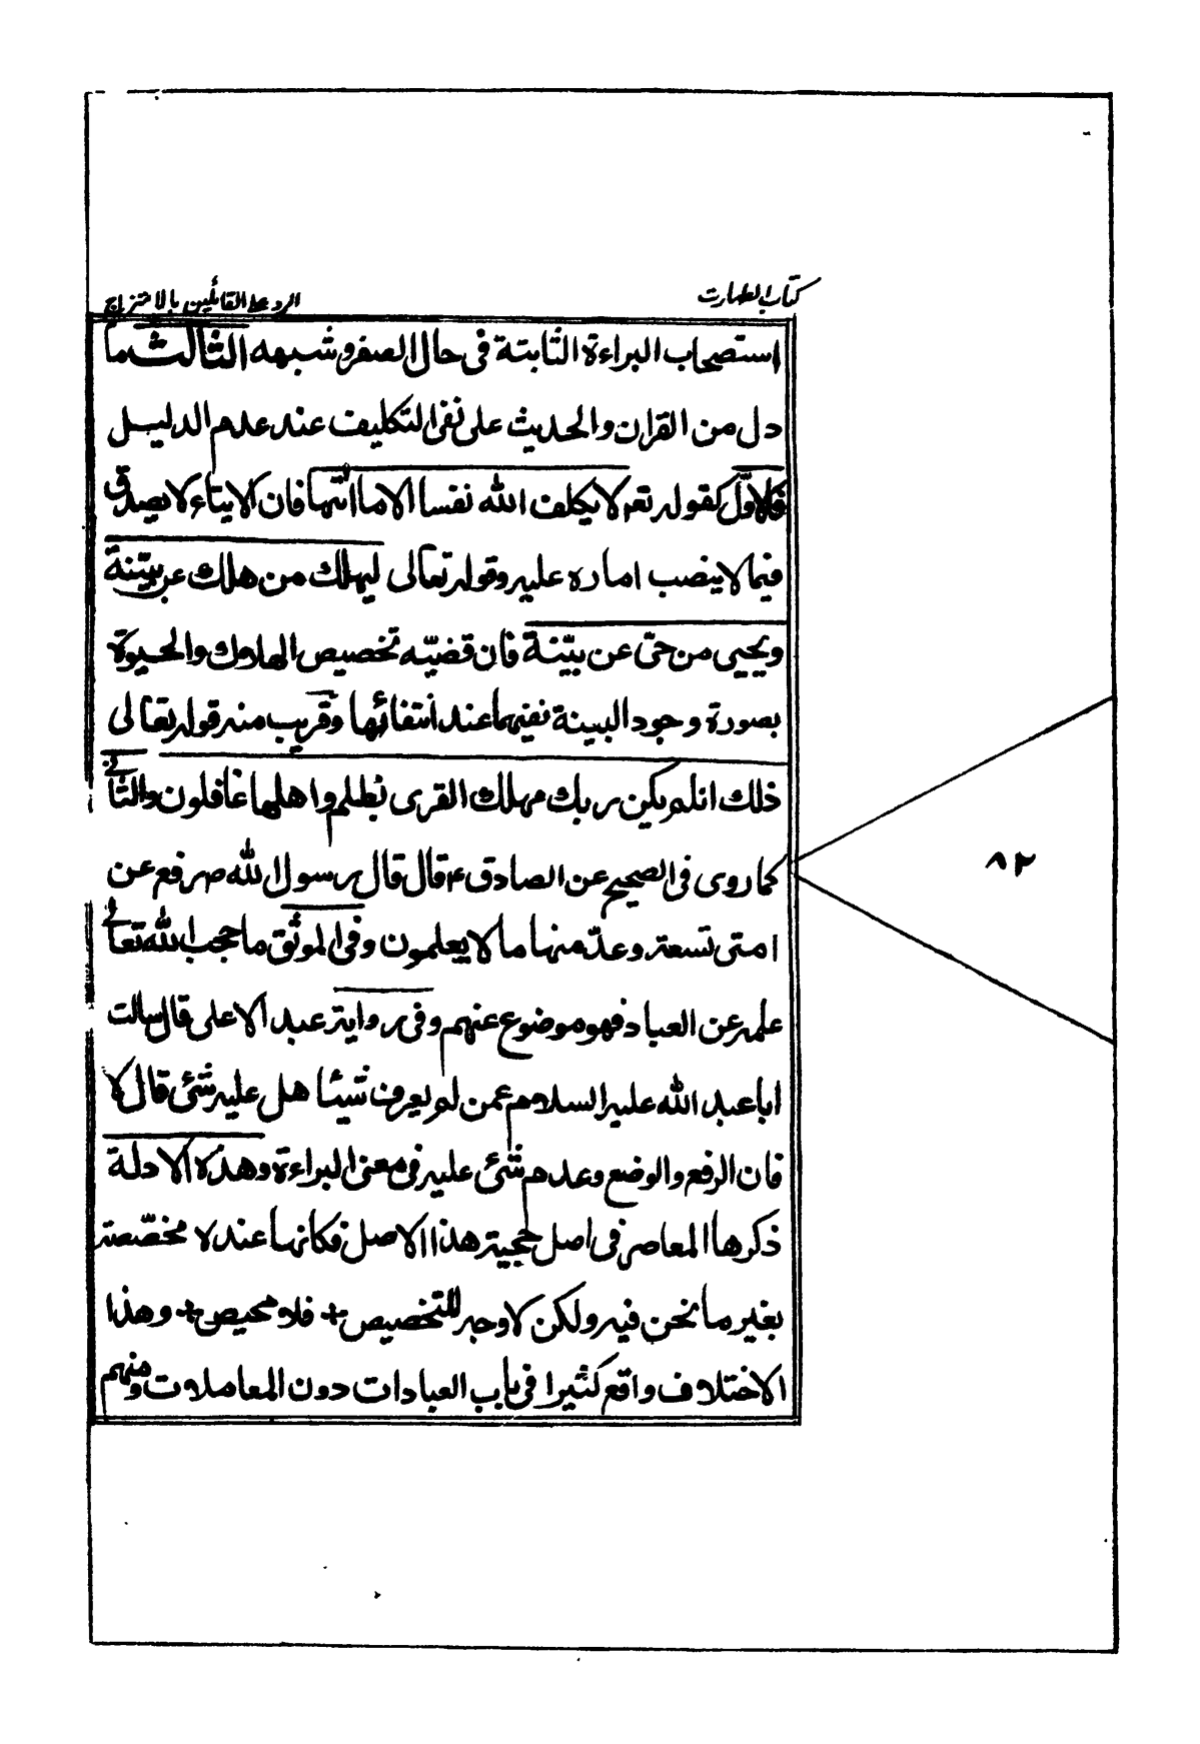 كتاب الطهارت
الرد على القائلين بالامتزاج
استصحاب البراءة الثابتة فى حال الصغر وشبهه الثالث ما
دل من القران والحديث على نفى التكليف عند عدم الدليل
فالاوّل كقوله تعم لا يكلف الله نفسا الا ما اتيها فان الايتاء لا يصدق
فيما لا ينصب اماره عليه وقوله تعالى ليهلك من هلك عن بيّنة
ويحيى من حىّ عن بيّنة فان قضيّه تخصيص الهلاك والحيوة
بصورة وجود البينة نفيهما عند انتفائها وقريب منه قوله تعالى
ذلك ان لم يكن ربك مهلك القرى بظلم واهلها غافلون والثانى
كما روى فى الصحيح عن الصادق ع قال قال رسول الله ص رفع عن
امتى تسعة وعدّ منها ما لا يعلمون وفى الموثق ما حجب الله تعالى
علمه عن العباد فهو موضوع عنهم وفى رواية عبد الاعلى قال سالت
ابا عبد الله عليه السلام عمن لم يعرف شيئا هل عليه شئ قال لا
فان الرفع والوضع وعدم شئ عليه فى معنى البراءة وهذه الادلة
ذكرها المعاصر فى اصل حجية هذا الاصل فكانها عنده مخصّصة
بغير ما نحن فيه ولكن لا وجه للتخصيص + فلا محيص + وهذا
الاختلاف واقع كثيرا فى باب العبادات دون المعاملات ومنهم
٨٢